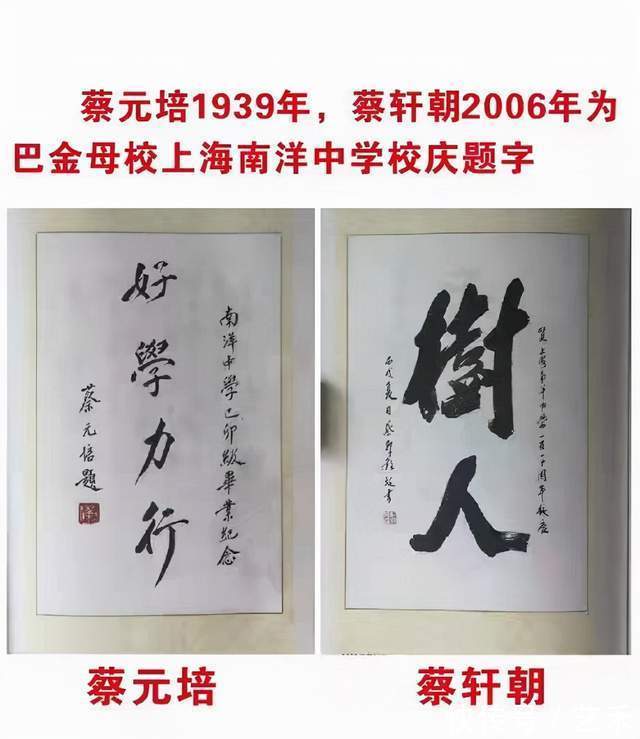 蔡元培1939年，蔡轩朝2006年为
巴金母校上海南洋中学校庆题字
南洋中學己卯級畢業紀念
好學力行
蔡元培題
賀上海南洋中學一百一十周年校慶
樹人
丙戌夏日蔡軒朝書
蔡元培
蔡轩朝
快传号